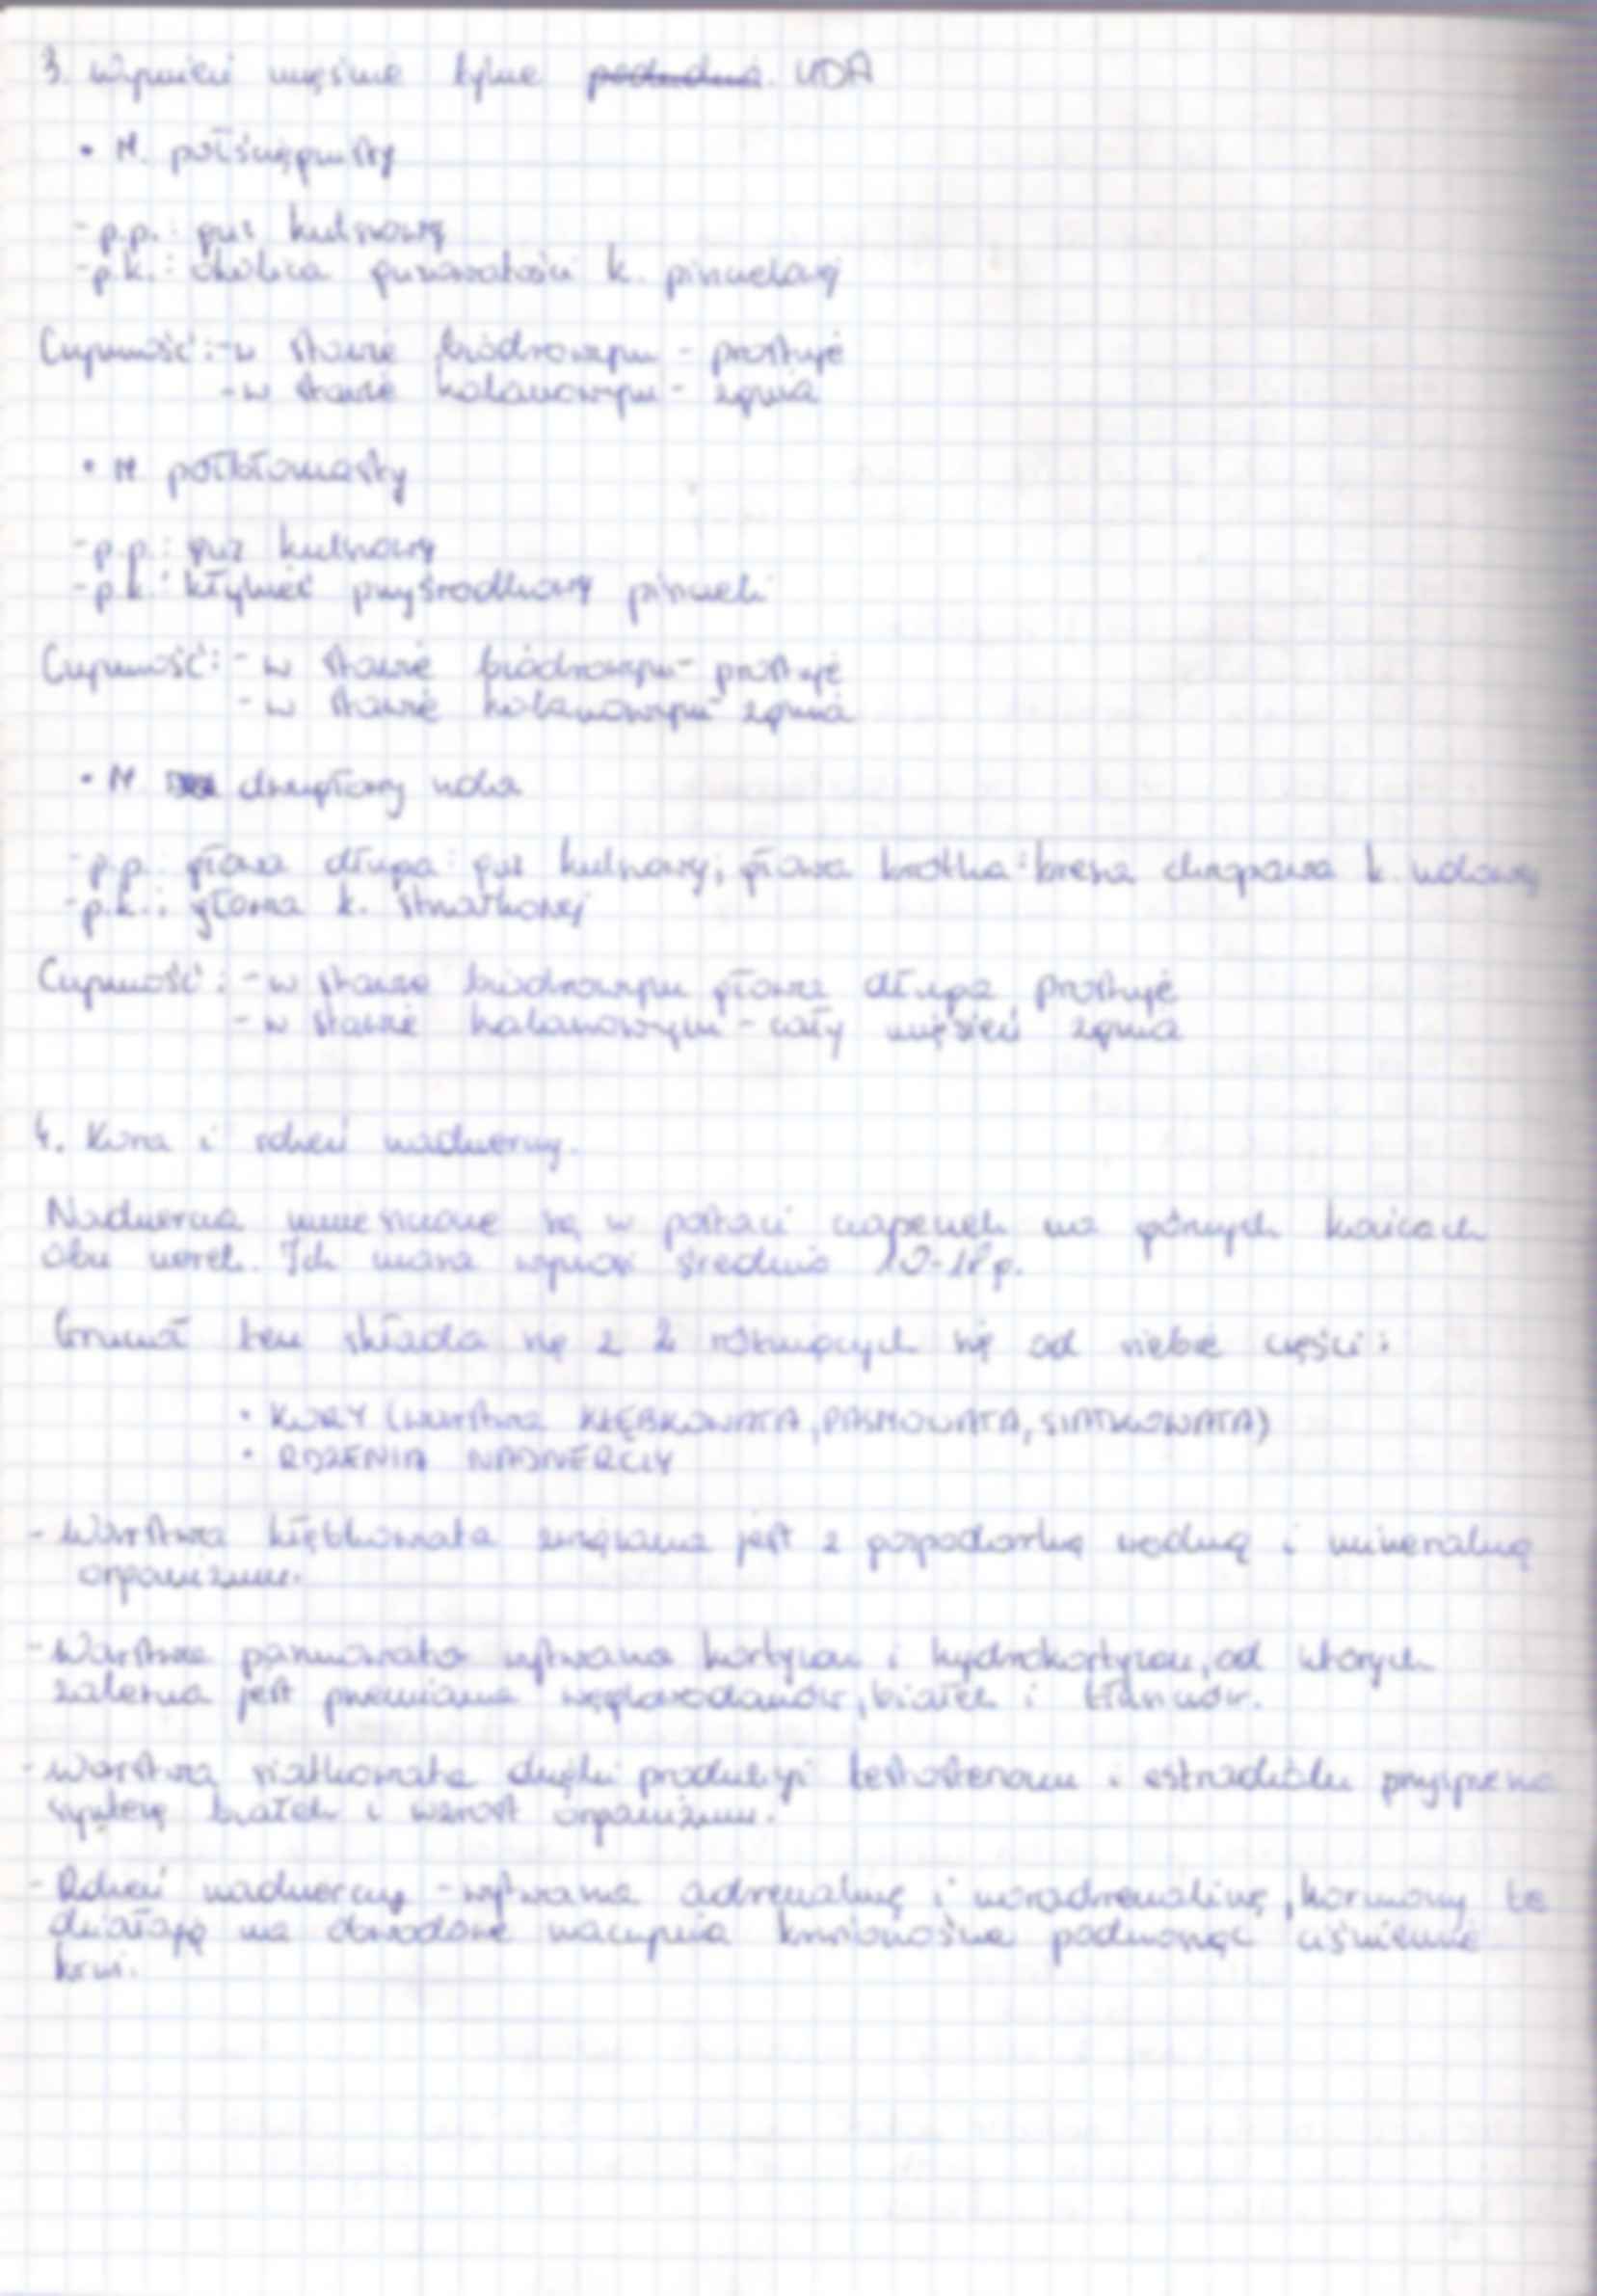 3. Wymień mięśnie tylne podudzia. UDA
• M. półścięgnisty
- p.p.: guz kulszowy
- p.k.: okolica guzowatości k. piszczelowej
Czynność: - w stawie biodrowym - prostuje
- w stawie kolanowym - zgina
• M. półbłoniasty
- p.p.: guz kulszowy
- p.k.: kłykieć przyśrodkowy piszczeli
Czynność: - w stawie biodrowym - prostuje
- w stawie kolanowym - zgina
• M. dwugłowy uda
- p.p.: głowa długa: guz kulszowy; głowa krótka: kresa chropawa k. udowej
- p.k.: głowa k. strzałkowej
Czynność: - w stawie biodrowym głowa długa prostuje
- w stawie kolanowym - cały mięsień zgina
4. Kora i rdzeń nadnerczy.
Nadnercza umieszczone są w postaci czapeczek na górnych końcach
obu nerek. Ich masa wynosi średnio 10-18g.
Gruczoł ten składa się z 2 różniących się od siebie części:
• KORY (warstwa KŁĘBKOWATA, PASMOWATA, SIATKOWATA)
• RDZENIA NADNERCZY
- Warstwa kłębkowata związana jest z gospodarką wodną i mineralną
organizmu.
- Warstwa pasmowata wytwarza kortyzon i hydrokortyzon, od których
zależna jest przemiana węglowodanów, białek i tłuszczów.
- Warstwa siatkowata dzięki produkcji testosteronu i estradiolu przyspiesza
syntezę białek i wzrost organizmu.
- Rdzeń nadnerczy - wytwarza adrenalinę i noradrenalinę, hormony te
działają na obwodowe naczynia krwionośne podnosząc ciśnienie
krwi.